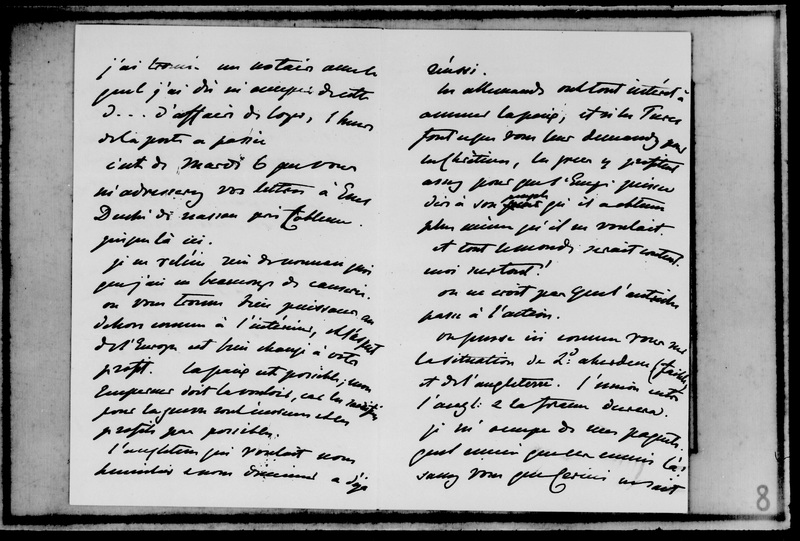 j'ai trouvé un notaire avec le
quel j'ai dû m'occuper de cette
D... d'affaire de logis, l'heure
de la poste a passé
c'est de Mardi 6 que vous
m'adresserez vos lettres à Ems
Duché de Nassau près Coblence.
jusque là ici.
je ne relève rien de nouveau quoi
que j'aie eu beaucoup de causerie.
on vous trouve bien puissance au
dehors comme à l'intérieur, et l'esprit
de l'Europe est bien changé à votre
profit. la paix est possible, mon
Empereur doit la vouloir, car les
pour la guerre sont et les
profits pas possibles.
l'angleterre qui voulait nous
humilier & nous diminuer a déjà
réussi.
les allemands ont tout intérêt à
amener la paix, et si les Turcs
font ce que vous leur demandez pour
les Chrétiens, les grecs y profitent
assez pour que l'Emp. puisse
dire à son peuple qu'il a obtenu
plus même qu'il ne voulait.
et tout le monde serait content
moi surtout!
on ne croit pas que l'autriche
passe à l'action.
on pense ici comme vous sur
la situation de Ld aberdeen (faible)
et de l'angleterre. l'union entre
l'angl: & la france durera.
je m'occupe de mes paquets
quel ennui que cet ennui là!
savez vous que Cerini ne sait
8